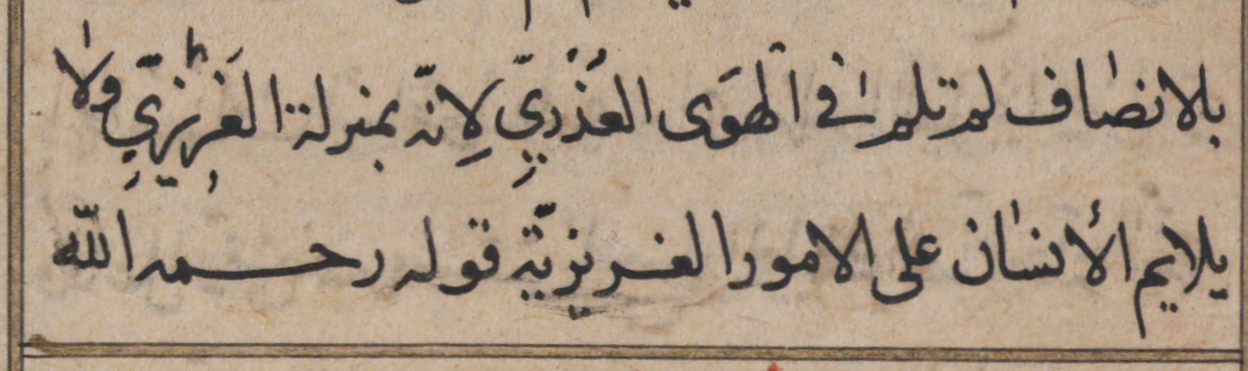 بلانصاف لم تلم اني في الهَوَى العُذْرِيِّ لِانّه بمنزلة الغَرِيْزِيّ ولا
يلايم الأنسان على الامور الغريزيّة قوله رحمه اللّه